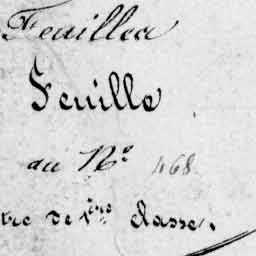 Feuilles
Feuille
au N° 468
tre de 1ère classe.